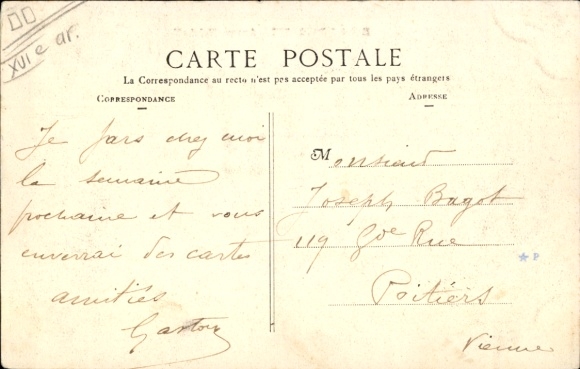 XVI e ar.
CARTE POSTALE
La Correspondance au recto n'est pas acceptée par tous les pays étrangers
CORRESPONDANCE
ADRESSE
Je pars chez moi
la semaine
prochaine et vous
enverrai des cartes
amitiés
Gaston
Monsieur
Joseph Bugot
119 Gde Rue
Poitiers
Vienne